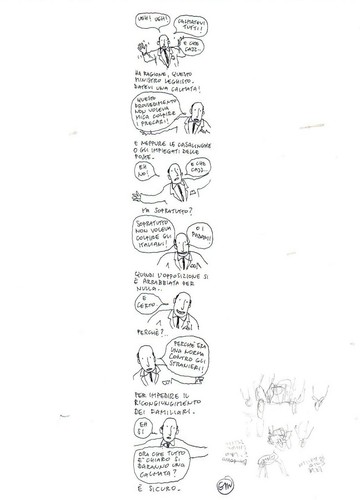 UEH! UEH!
CALMATEVI
TUTTI!
E CHE
CAZZ..
HA RAGIONE, QUESTO
MINISTRO LEGHISTO..
DATEVI UNA CALMATA!
QUESTO
PROVVEDIMENTO
NON VOLEVA
MICA COLPIRE
I PRECARI!
E NEPPURE LE CASALINGHE
O GLI IMPIEGATI DELLE
POSTE.
EH
NO!
E CHE
CAZZ..
MA SOPRATUTTO?
SOPRATUTTO
NON VOLEVA
COLPIRE GLI
ITALIANI!
O I
PADANI!
QUINDI L'OPPOSIZIONE SI
È ARRABBIATA PER
NULLA..
E
CERTO..
PERCHÉ?..
PERCHÉ ERA
UNA NORMA
CONTRO GLI
STRANIERI!
PER IMPEDIRE IL
RICONGIUNGIMENTO
DEI FAMILIARI.
EH
SI
ORA CHE TUTTO
E' CHIARO SI
DARANNO UNA
CALMATA?
È SICURO..